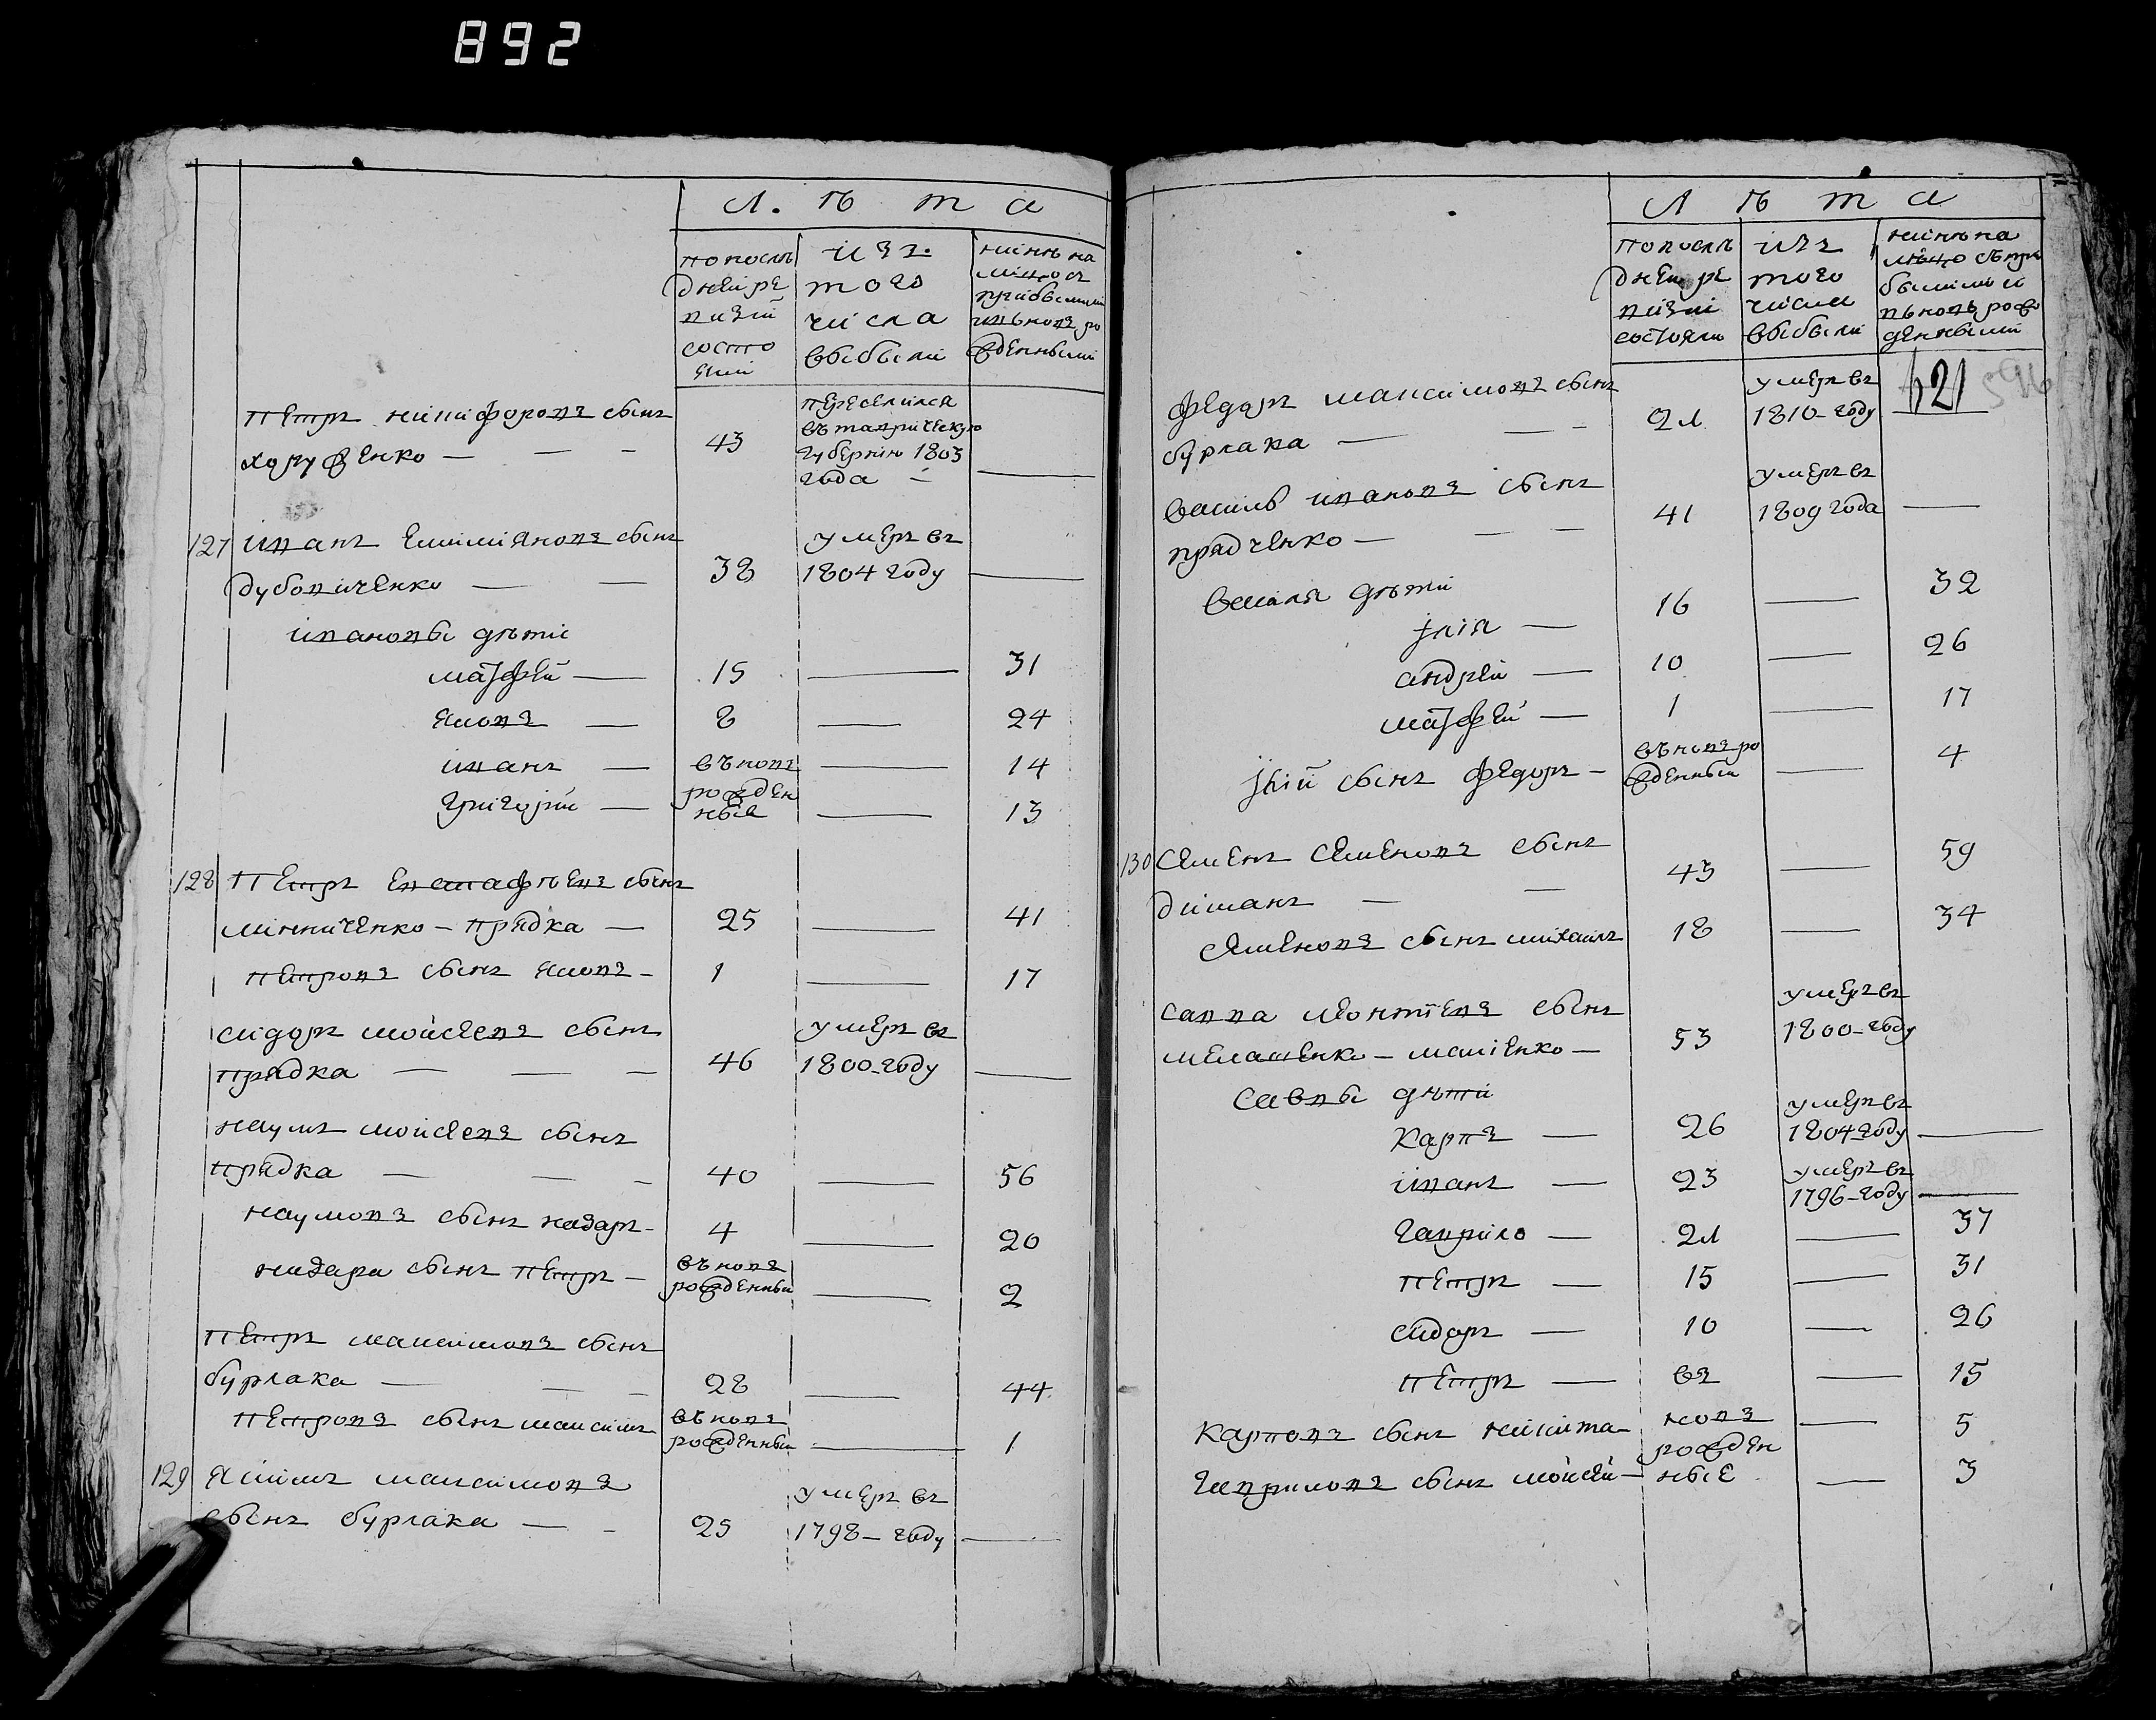 892
Л ѣ т а
по послѣ
дней ре
визіи
состо
яли
изъ
того
числа
выбыли
нынѣ на
лицо съ
прибылыми
и вновь ро
жденными
Петръ никифоровъ сынъ
хоруженко — — —
43
переселился
въ таврическую
губернію 1803
года —
127 Иванъ Емилияновъ сынъ
дубовиченко — —
38
умеръ въ
1804 году
Ивановы дѣти
матфей — 15 — 31
яковъ — 8 — 24
иванъ — въновь — 14
григорій — рожден
ные — 13
128 Петръ Евстафѣевъ сынъ
минниченко — прядка — 25 — 41
петровъ сынъ яковъ — 1 — 17
сидоръ мойсеевъ сынъ
прядка — — — 46
умеръ въ
1800 году —
наумъ мойсеевъ сынъ
прядка — — — 40 — 56
наумовъ сынъ назаръ — 4 — 20
назара сынъ петръ —
въновь
рожденный — 2
Петръ максимовъ сынъ
бурлака — — — 28 — 44
петровъ сынъ максимъ
въновь
рожденный — 1
129 Якимъ максимовъ
сынъ бурлака — — 25
умеръ въ
1798 году —
Л ѣ т а
по послѣ
дней ре
визіи
состояли
изъ
того
числа
выбыли
нынѣ на
лицо съ при
былыми и
вновь рож
денными
521
федоръ максимовъ сынъ
бурлака — — — 21
умеръ въ
1810 году —
василь ивановъ сынъ
прядченко — — — 41
умеръ въ
1809 года —
василя дѣти
илія — 16 — 32
андрей — 10 — 26
матфей — 1 — 17
иліи сынъ федоръ —
въновь ро
жденный — 4
130 Семенъ Семеновъ сынъ
диманъ — — 43 — 59
семеновъ сынъ михаилъ 18 — 34
савва леонтіевъ сынъ
мелашенко — маліенко — 53
умеръ въ
1800 году
саввы дѣти
карпъ — 26
умеръ въ
1804 году —
иванъ — 23
умеръ въ
1796 году —
гаврило — 21 — 37
петръ — 15 — 31
сидоръ — 10 — 26
петръ — въ — 15
карповъ сынъ никита — новь — 5
рожден
гавриловъ сынъ мойсей — ные — 3